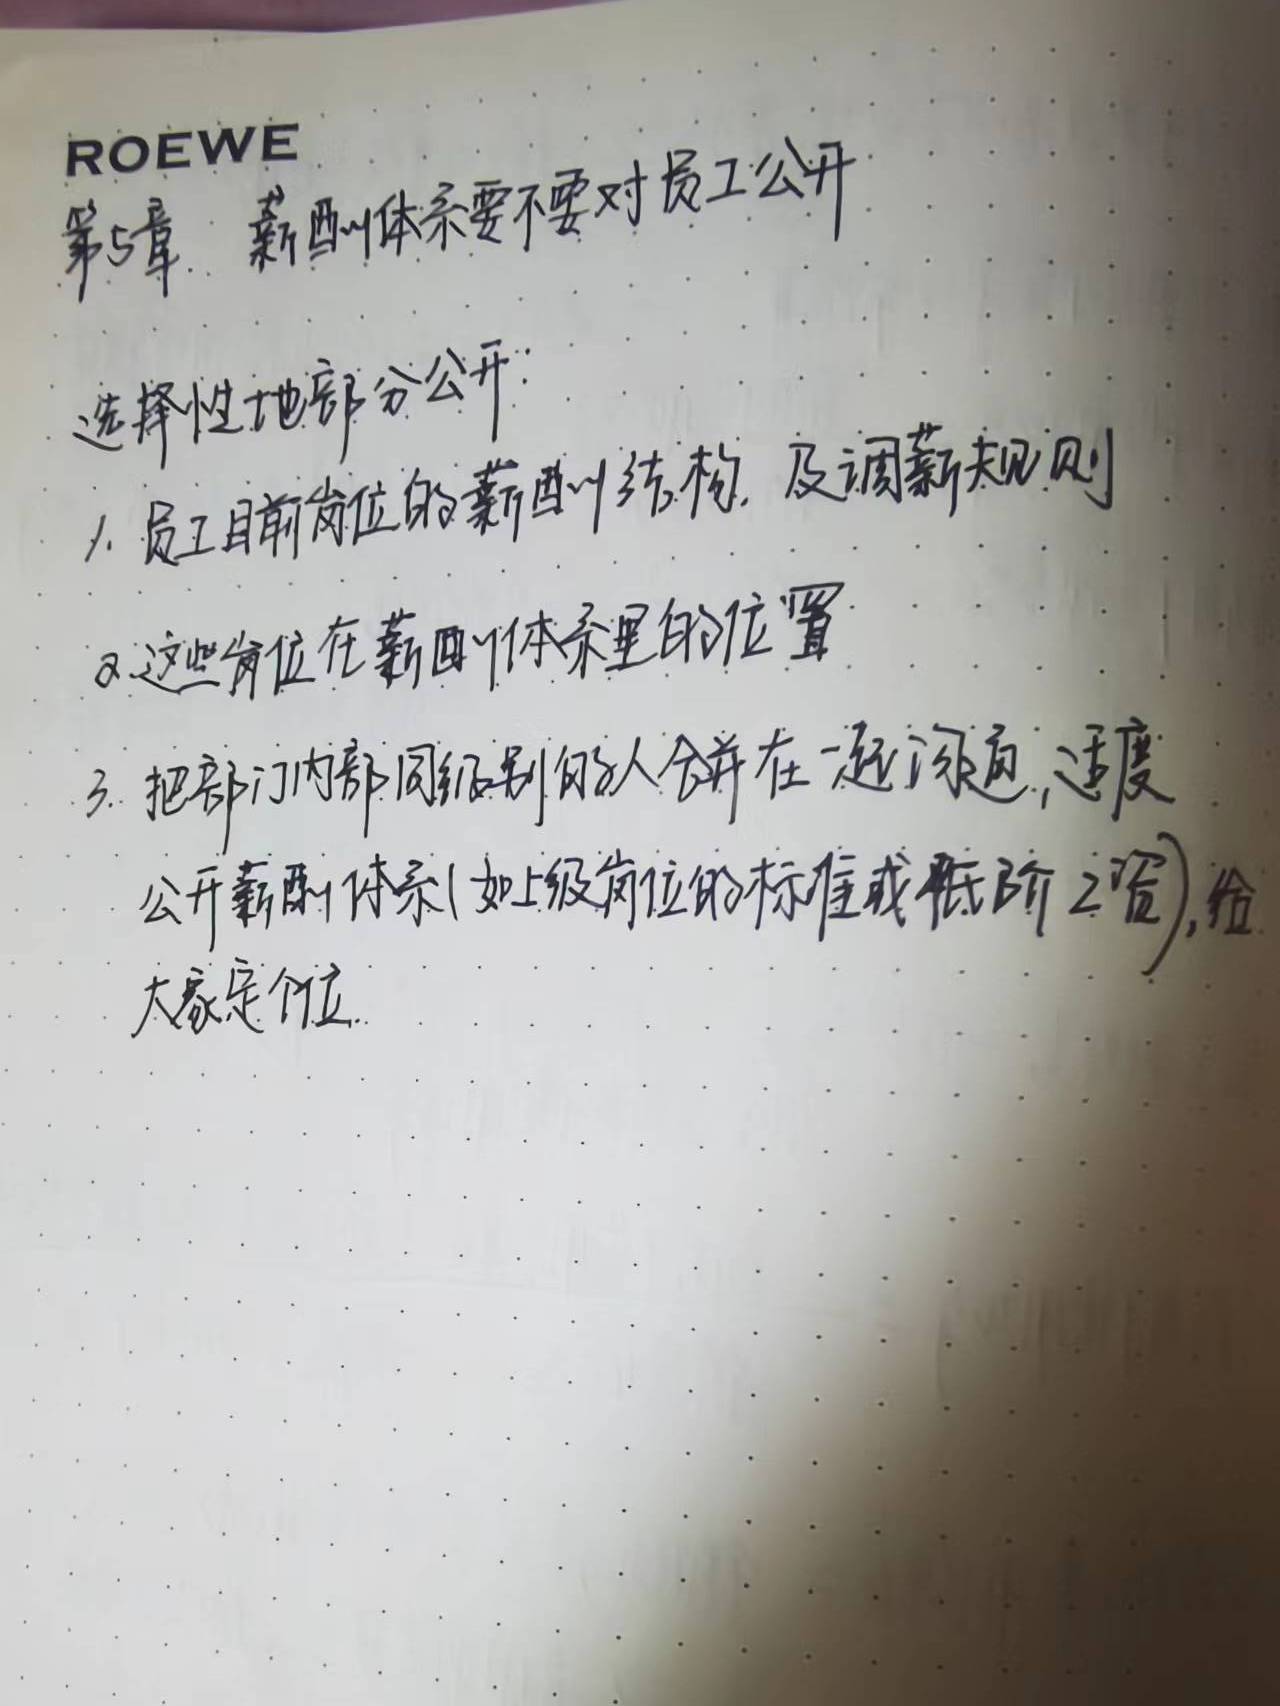 ROEWE
第5章 薪酬体系要不要对员工公开
选择性地部分公开:
1. 员工目前岗位的薪酬结构,及调薪规则
2.这些岗位在薪酬体系里的位置
3. 把部门内部同级别的人合并在一起沟通,适度
公开薪酬体系(如上级岗位的标准或低阶工资),给
大家定个位.